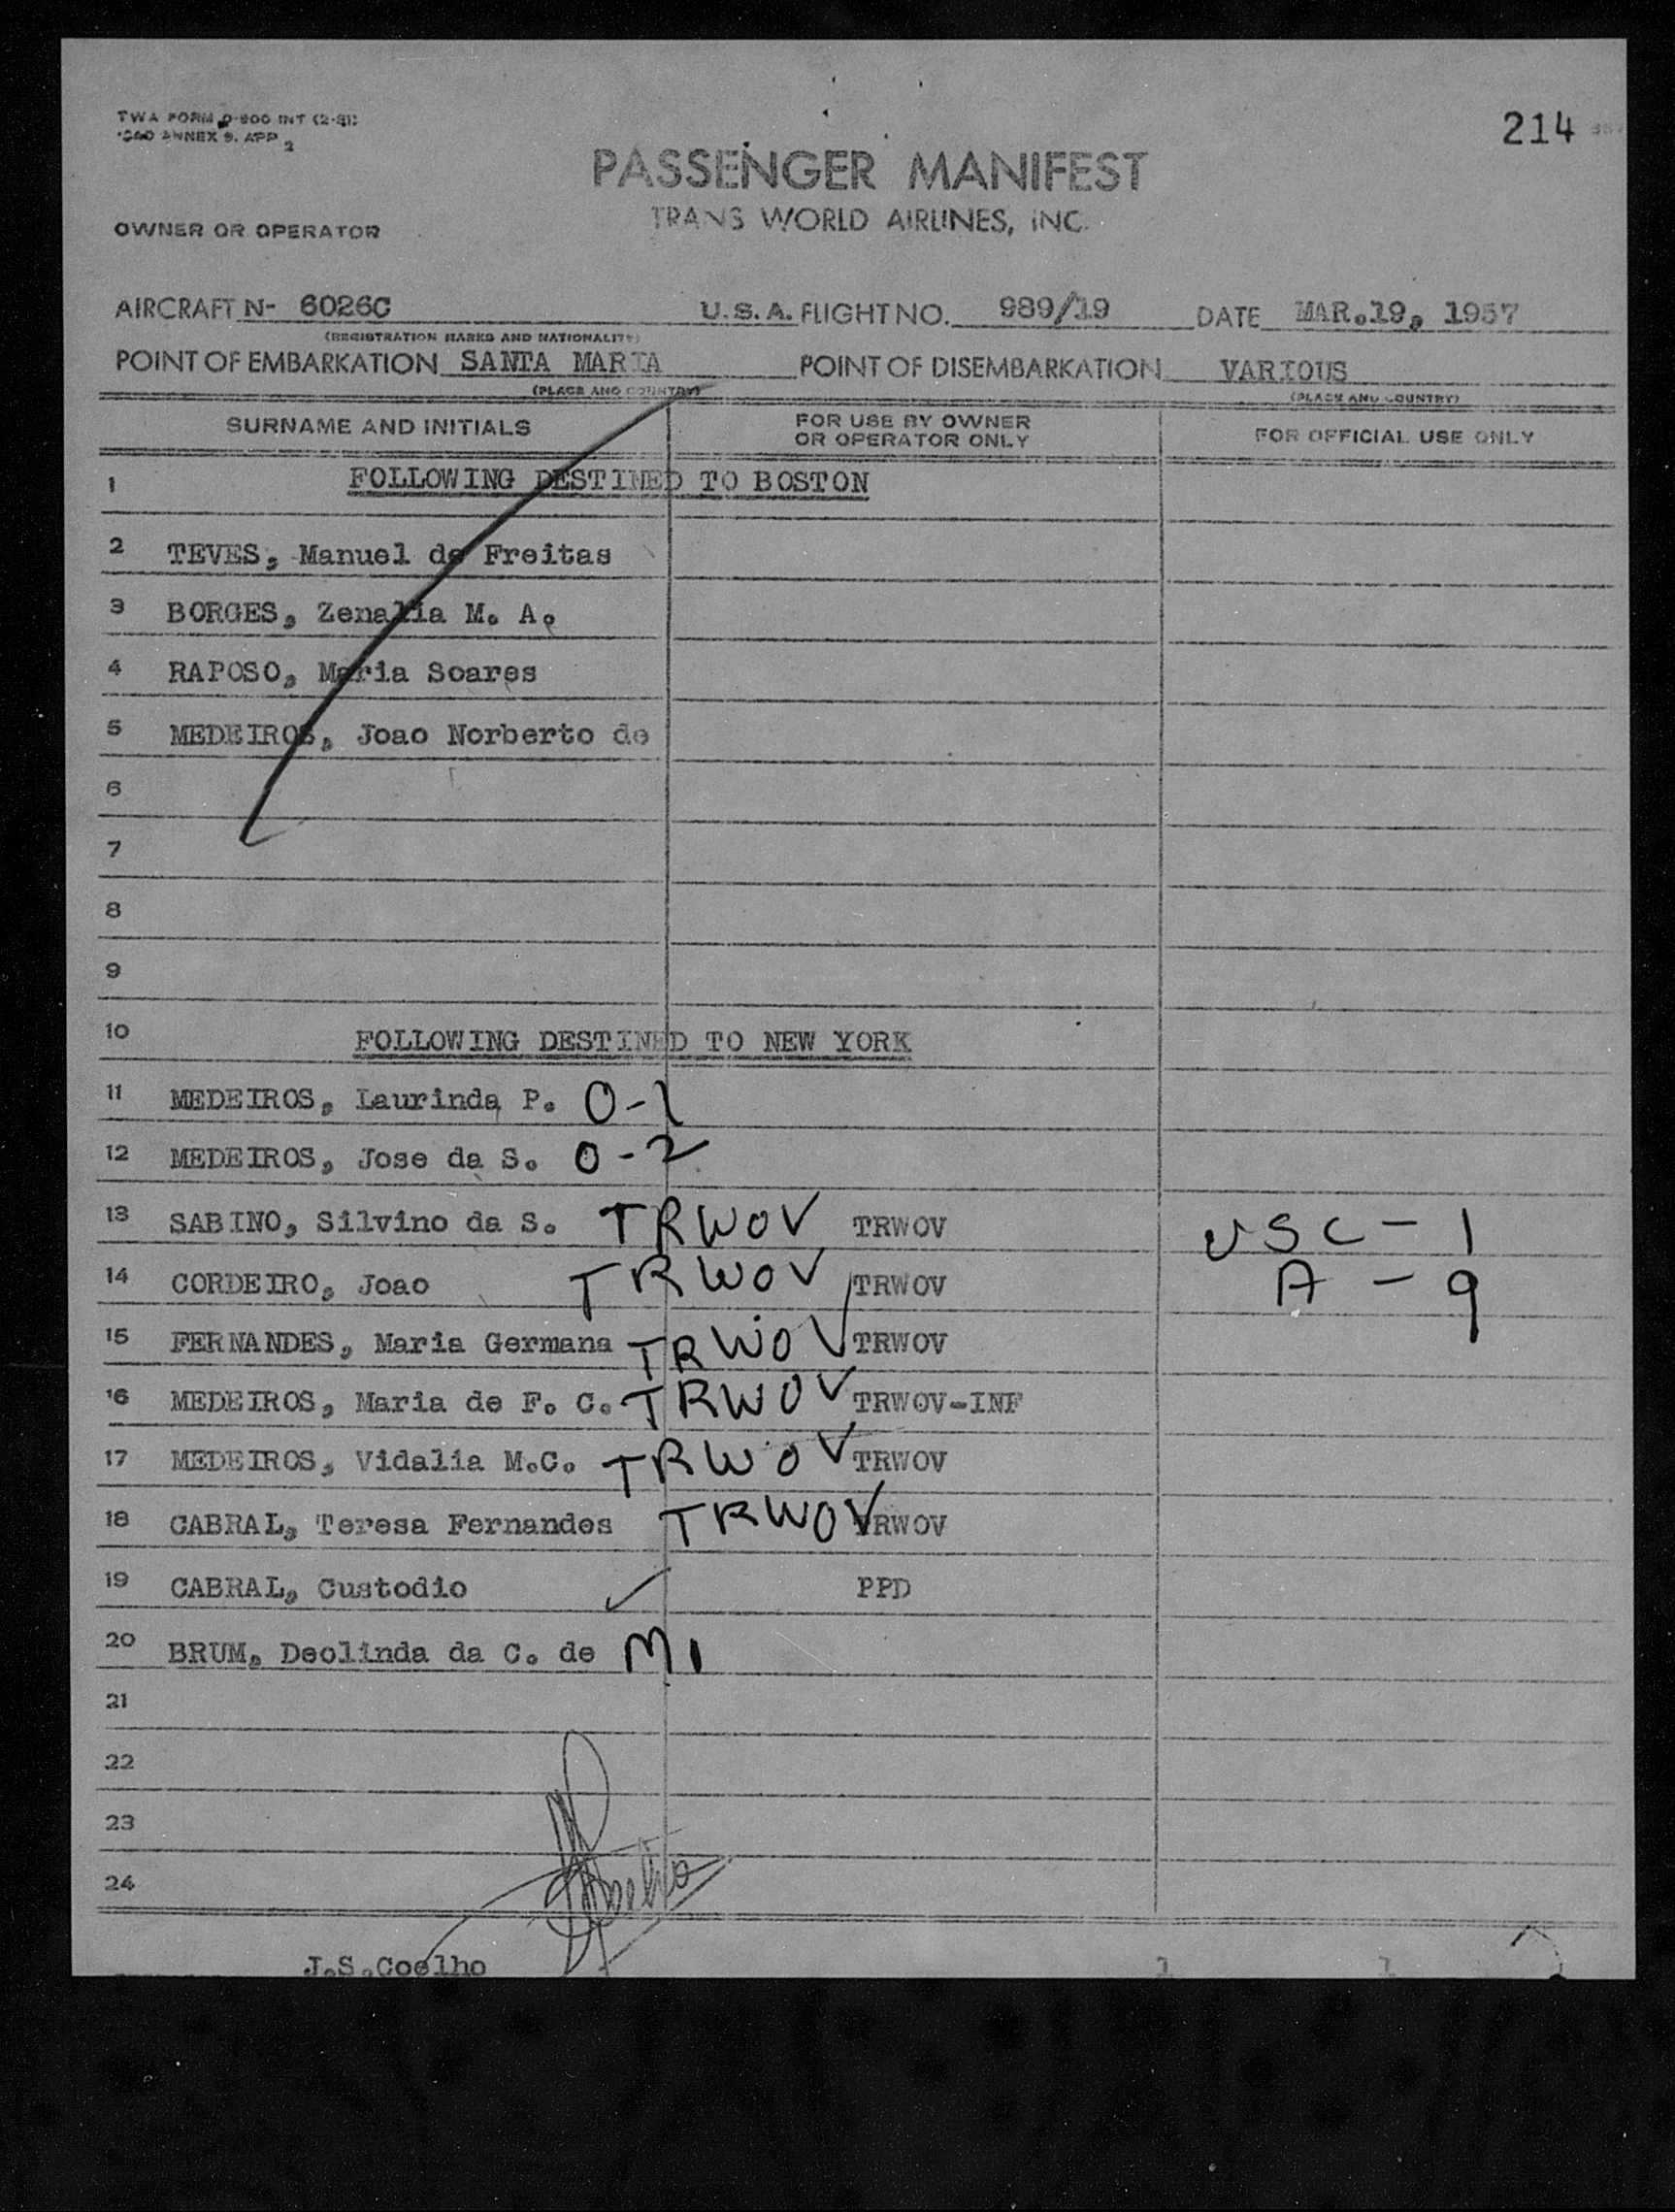 TWA FORM O-800 INT (2-51)
ICAO ANNEX 9. APP 2
214
PASSENGER MANIFEST
TRANS WORLD AIRLINES, INC.
OWNER OR OPERATOR
AIRCRAFT N- 6026C U.S.A. FLIGHT NO. 989/19 DATE MAR.19, 1957
(REGISTRATION MARKS AND NATIONALITY)
POINT OF EMBARKATION SANTA MARIA POINT OF DISEMBARKATION VARIOUS
(PLACE AND COUNTRY) (PLACE AND COUNTRY)
SURNAME AND INITIALS FOR USE BY OWNER OR OPERATOR ONLY FOR OFFICIAL USE ONLY
1 FOLLOWING DESTINED TO BOSTON
2 TEVES, Manuel de Freitas
3 BORGES, Zenalia M. A.
4 RAPOSO, Maria Soares
5 MEDEIROS, Joao Norberto de
6
7
8
9
10 FOLLOWING DESTINED TO NEW YORK
11 MEDEIROS, Laurinda P. O-1
12 MEDEIROS, Jose da S. O-2
13 SABINO, Silvino da S. TRWOV TRWOV USC - 1
14 CORDEIRO, Joao TRWOV TRWOV A - 9
15 FERNANDES, Maria Germana TRWOV TRWOV
16 MEDEIROS, Maria de F. C. TRWOV TRWOV-INF
17 MEDEIROS, Vidalia M.C. TRWOV TRWOV
18 CABRAL, Teresa Fernandes TRWOV TRWOV
19 CABRAL, Custodio ✓ PPD
20 BRUM, Deolinda da C. de M1
21
22
23
24
J.S.Coelho